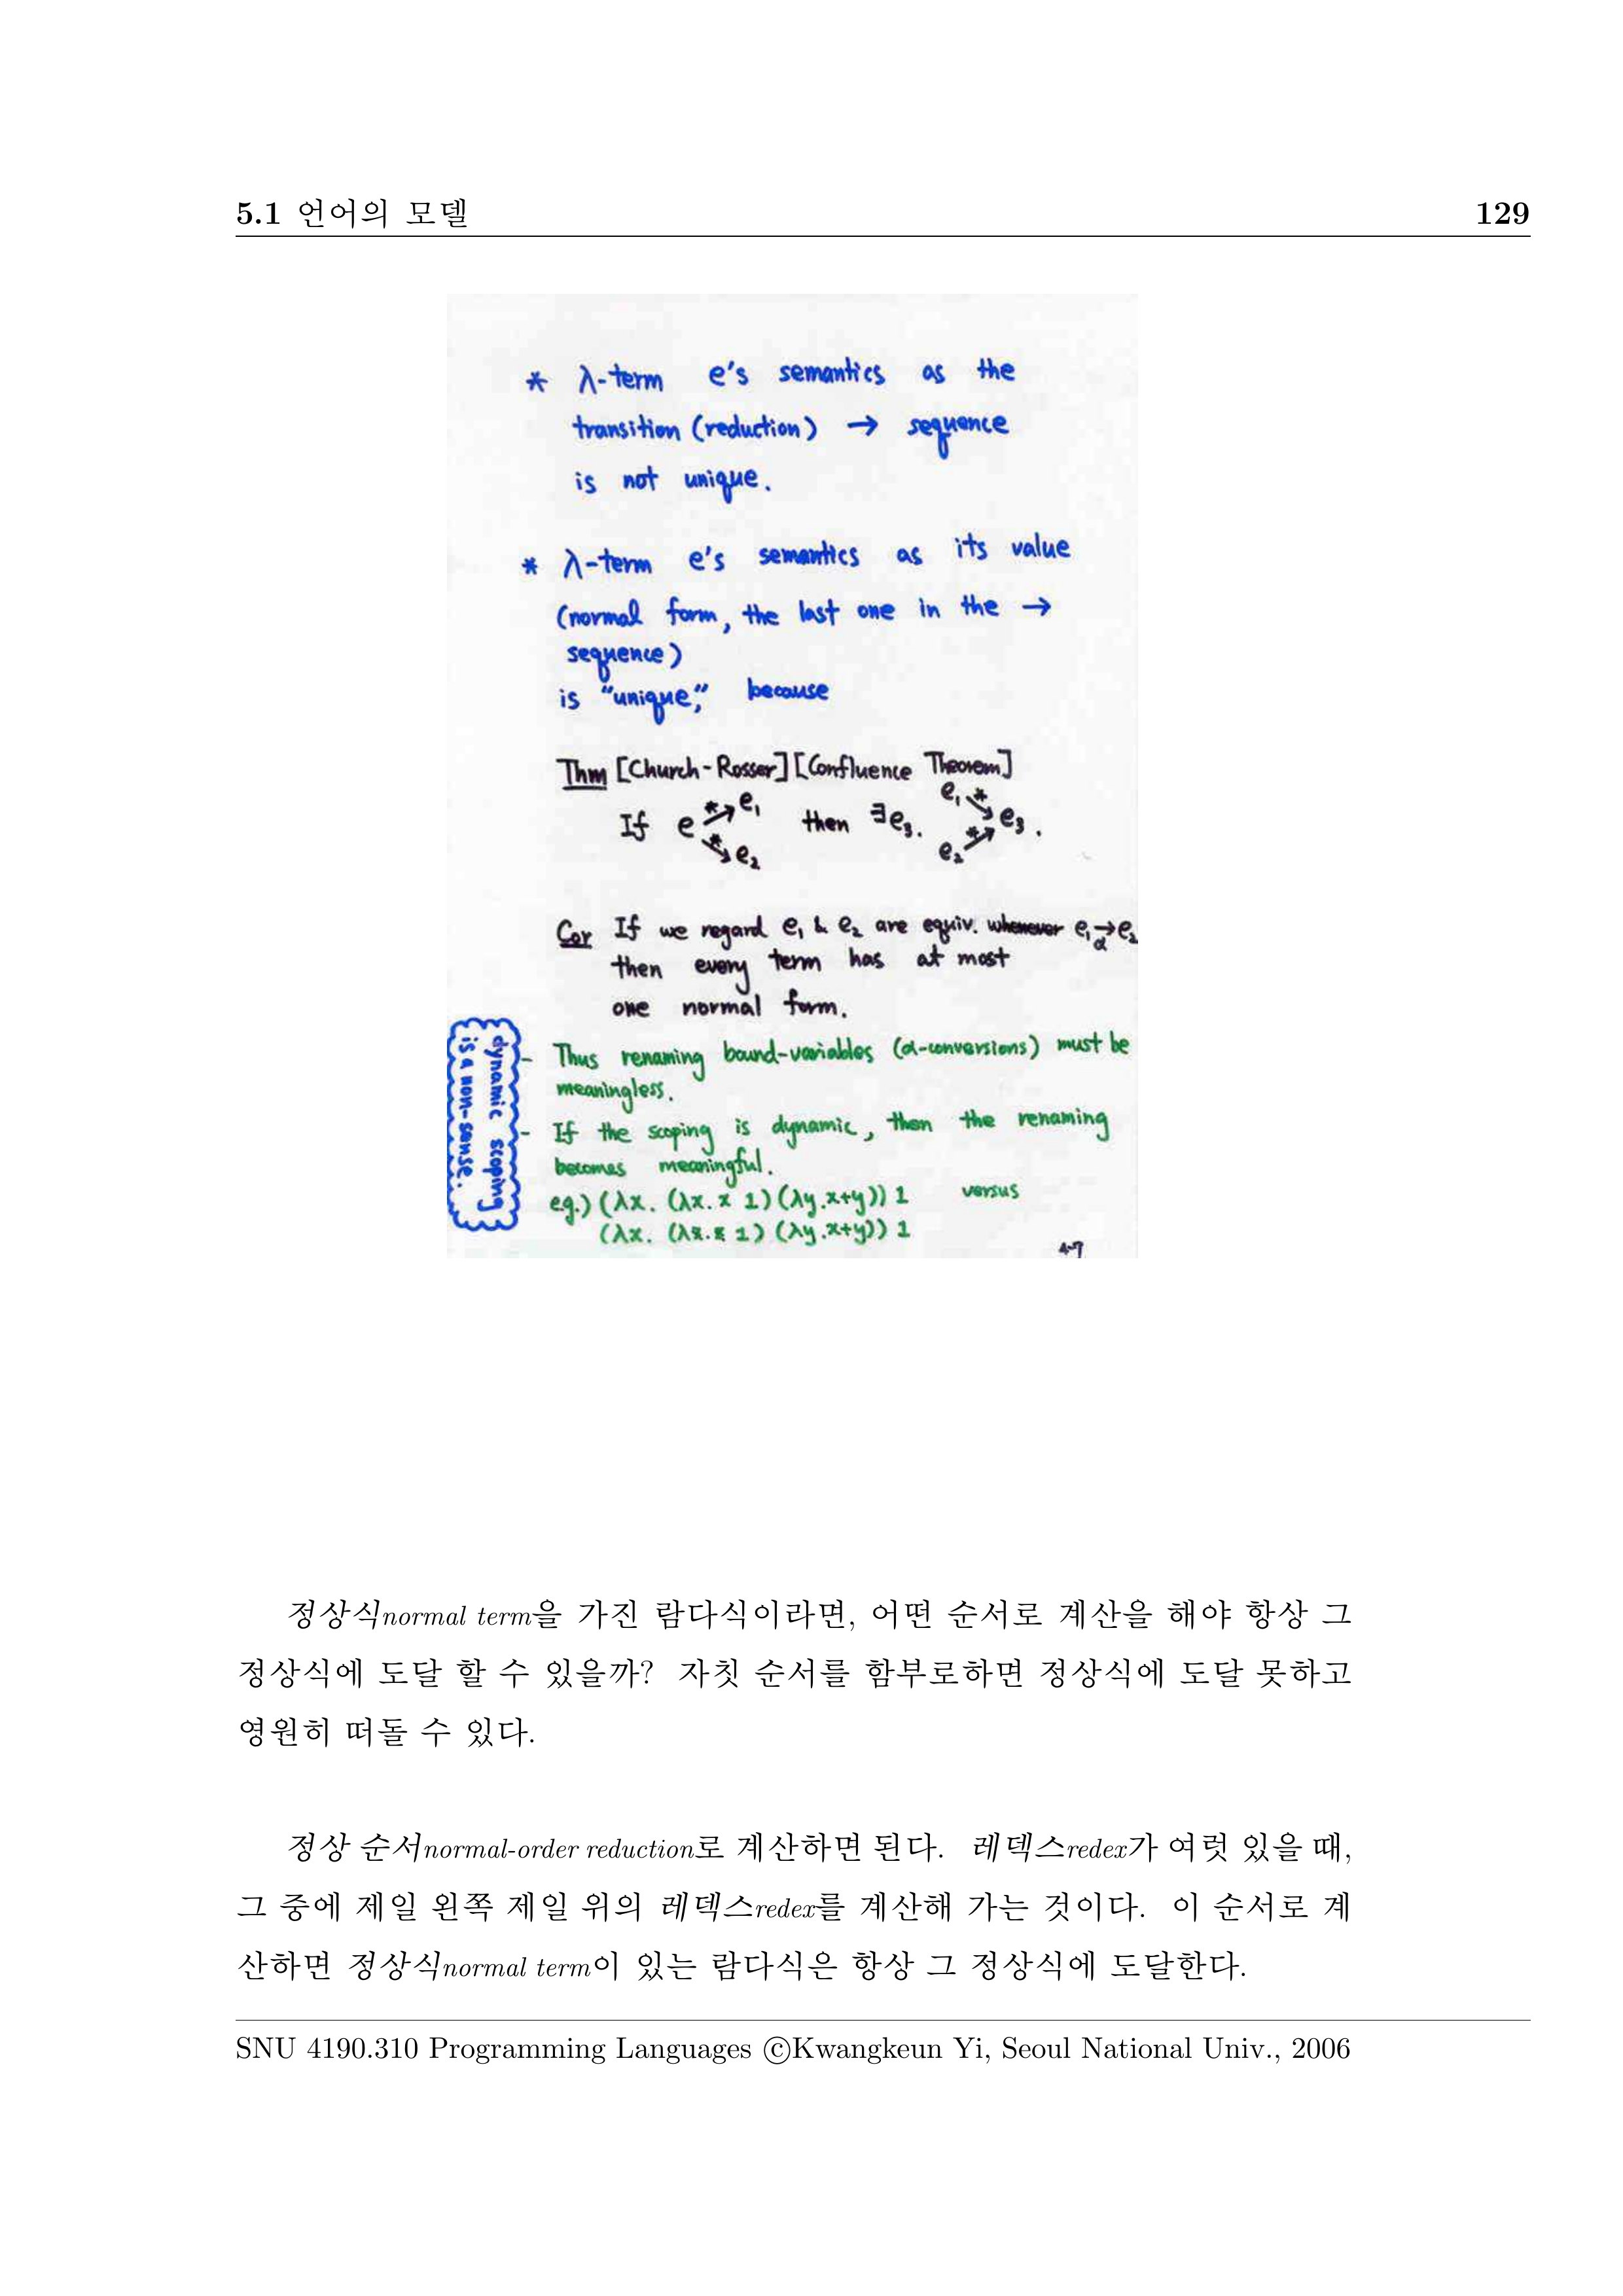 5.1 언어의 모델 129
* λ-term e's semantics as the
transition (reduction) → sequence
is not unique.
* λ-term e's semantics as its value
(normal form, the last one in the →
sequence)
is "unique," because
Thm [Church-Rosser] [Confluence Theorem]
If e →* e₁ →* e₂ then ∃e₃. e₁ →* e₃ e₂ →* e₃.
Cor If we regard e₁ & e₂ are equiv. whenever e₁ →α e₂
then every term has at most
one normal form.
- Thus renaming bound-variables (α-conversions) must be
meaningless.
- If the scoping is dynamic, then the renaming
becomes meaningful.
eg.) (λx. (λx. x 1) (λy.x+y)) 1 versus
(λx. (λz.z 1) (λy.x+y)) 1
dynamic scoping
is a non-sense.
4-7
정상식normal term을 가진 람다식이라면, 어떤 순서로 계산을 해야 항상 그
정상식에 도달 할 수 있을까? 자칫 순서를 함부로하면 정상식에 도달 못하고
영원히 떠돌 수 있다.
정상 순서normal-order reduction로 계산하면 된다. 레덱스redex가 여럿 있을 때,
그 중에 제일 왼쪽 제일 위의 레덱스redex를 계산해 가는 것이다. 이 순서로 계
산하면 정상식normal term이 있는 람다식은 항상 그 정상식에 도달한다.
SNU 4190.310 Programming Languages ©Kwangkeun Yi, Seoul National Univ., 2006